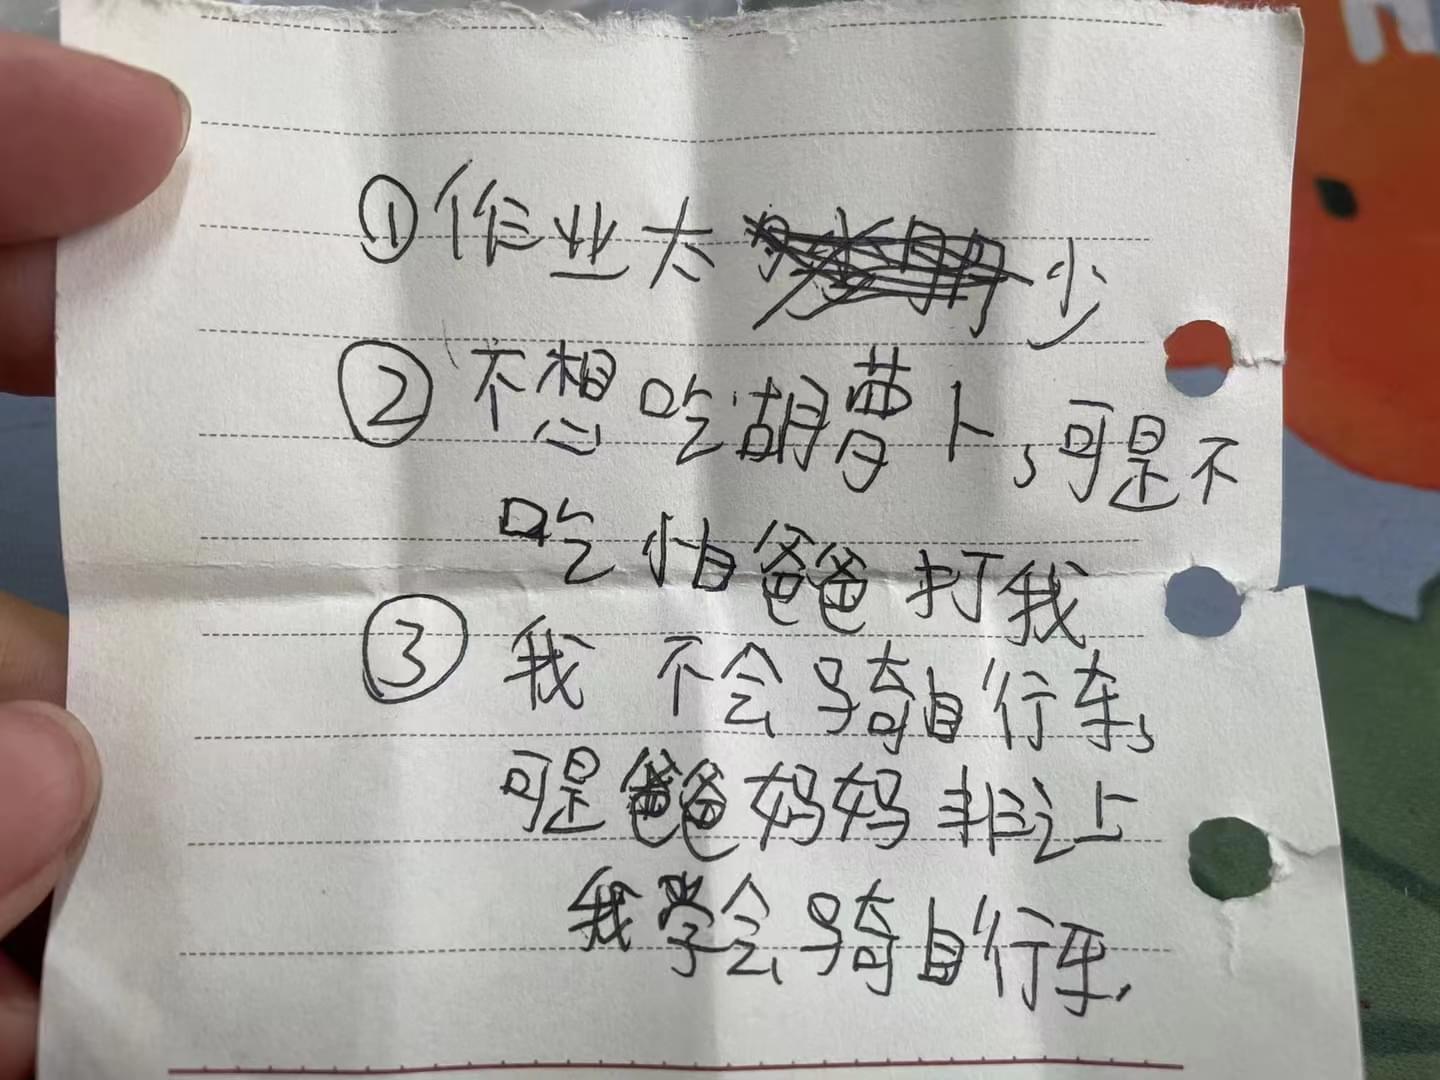 ①作业太少
②不想吃胡萝卜，可是不
吃怕爸爸打我
③我不会骑自行车，
可是爸爸妈妈非让上
我学会骑自行车，